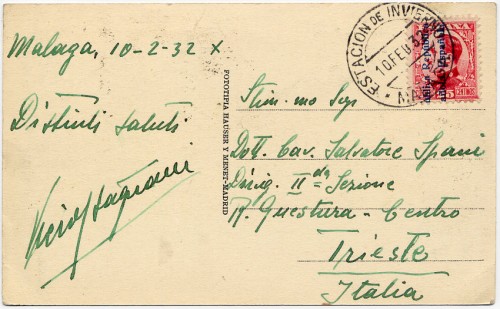 Malaga, 10-2-32 x
Distinti saluti
FOTOTIPIA HAUSER Y MENET-MADRID
ESTACION DE INVIERNO
10 FEB 32
MA
Stim.mo Sig
Dott. Cav. Salvatore Spani
Dirig. II da Sezione
R. Questura - Centro
Trieste
Italia